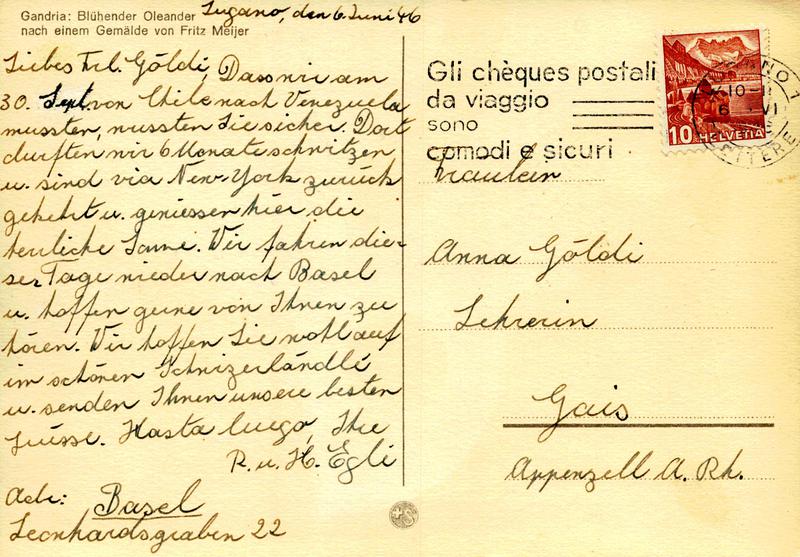 Gandria: Blühender Oleander
nach einem Gemälde von Fritz Meijer
Lugano, den 6. Juni 46
Liebes Frl. Göldi, Dass wir am
30. Sept. von Chile nach Venezuela
mussten, wussten Sie sicher. Dort
durften wir 6 Monate schwitzen
u. sind via New-York zurück
gekehrt u. geniessen hier die
herrliche Sonne. Wir fahren die-
se Tage wieder nach Basel
u. hoffen gerne von Ihnen zu
hören. Wir hoffen Sie wohlauf
im schönen Schwizerländli
u. senden Ihnen unsere besten
Grüsse. Hasta luego, Ihre
R. u. H. Egli
Adr: Basel
Leonhardsgraben 22
Gli chèques postali
da viaggio
sono
comodi e sicuri
10 HELVETIA
Fräulein
Anna Göldi
Lehrerin
Gais
Appenzell A. Rh.